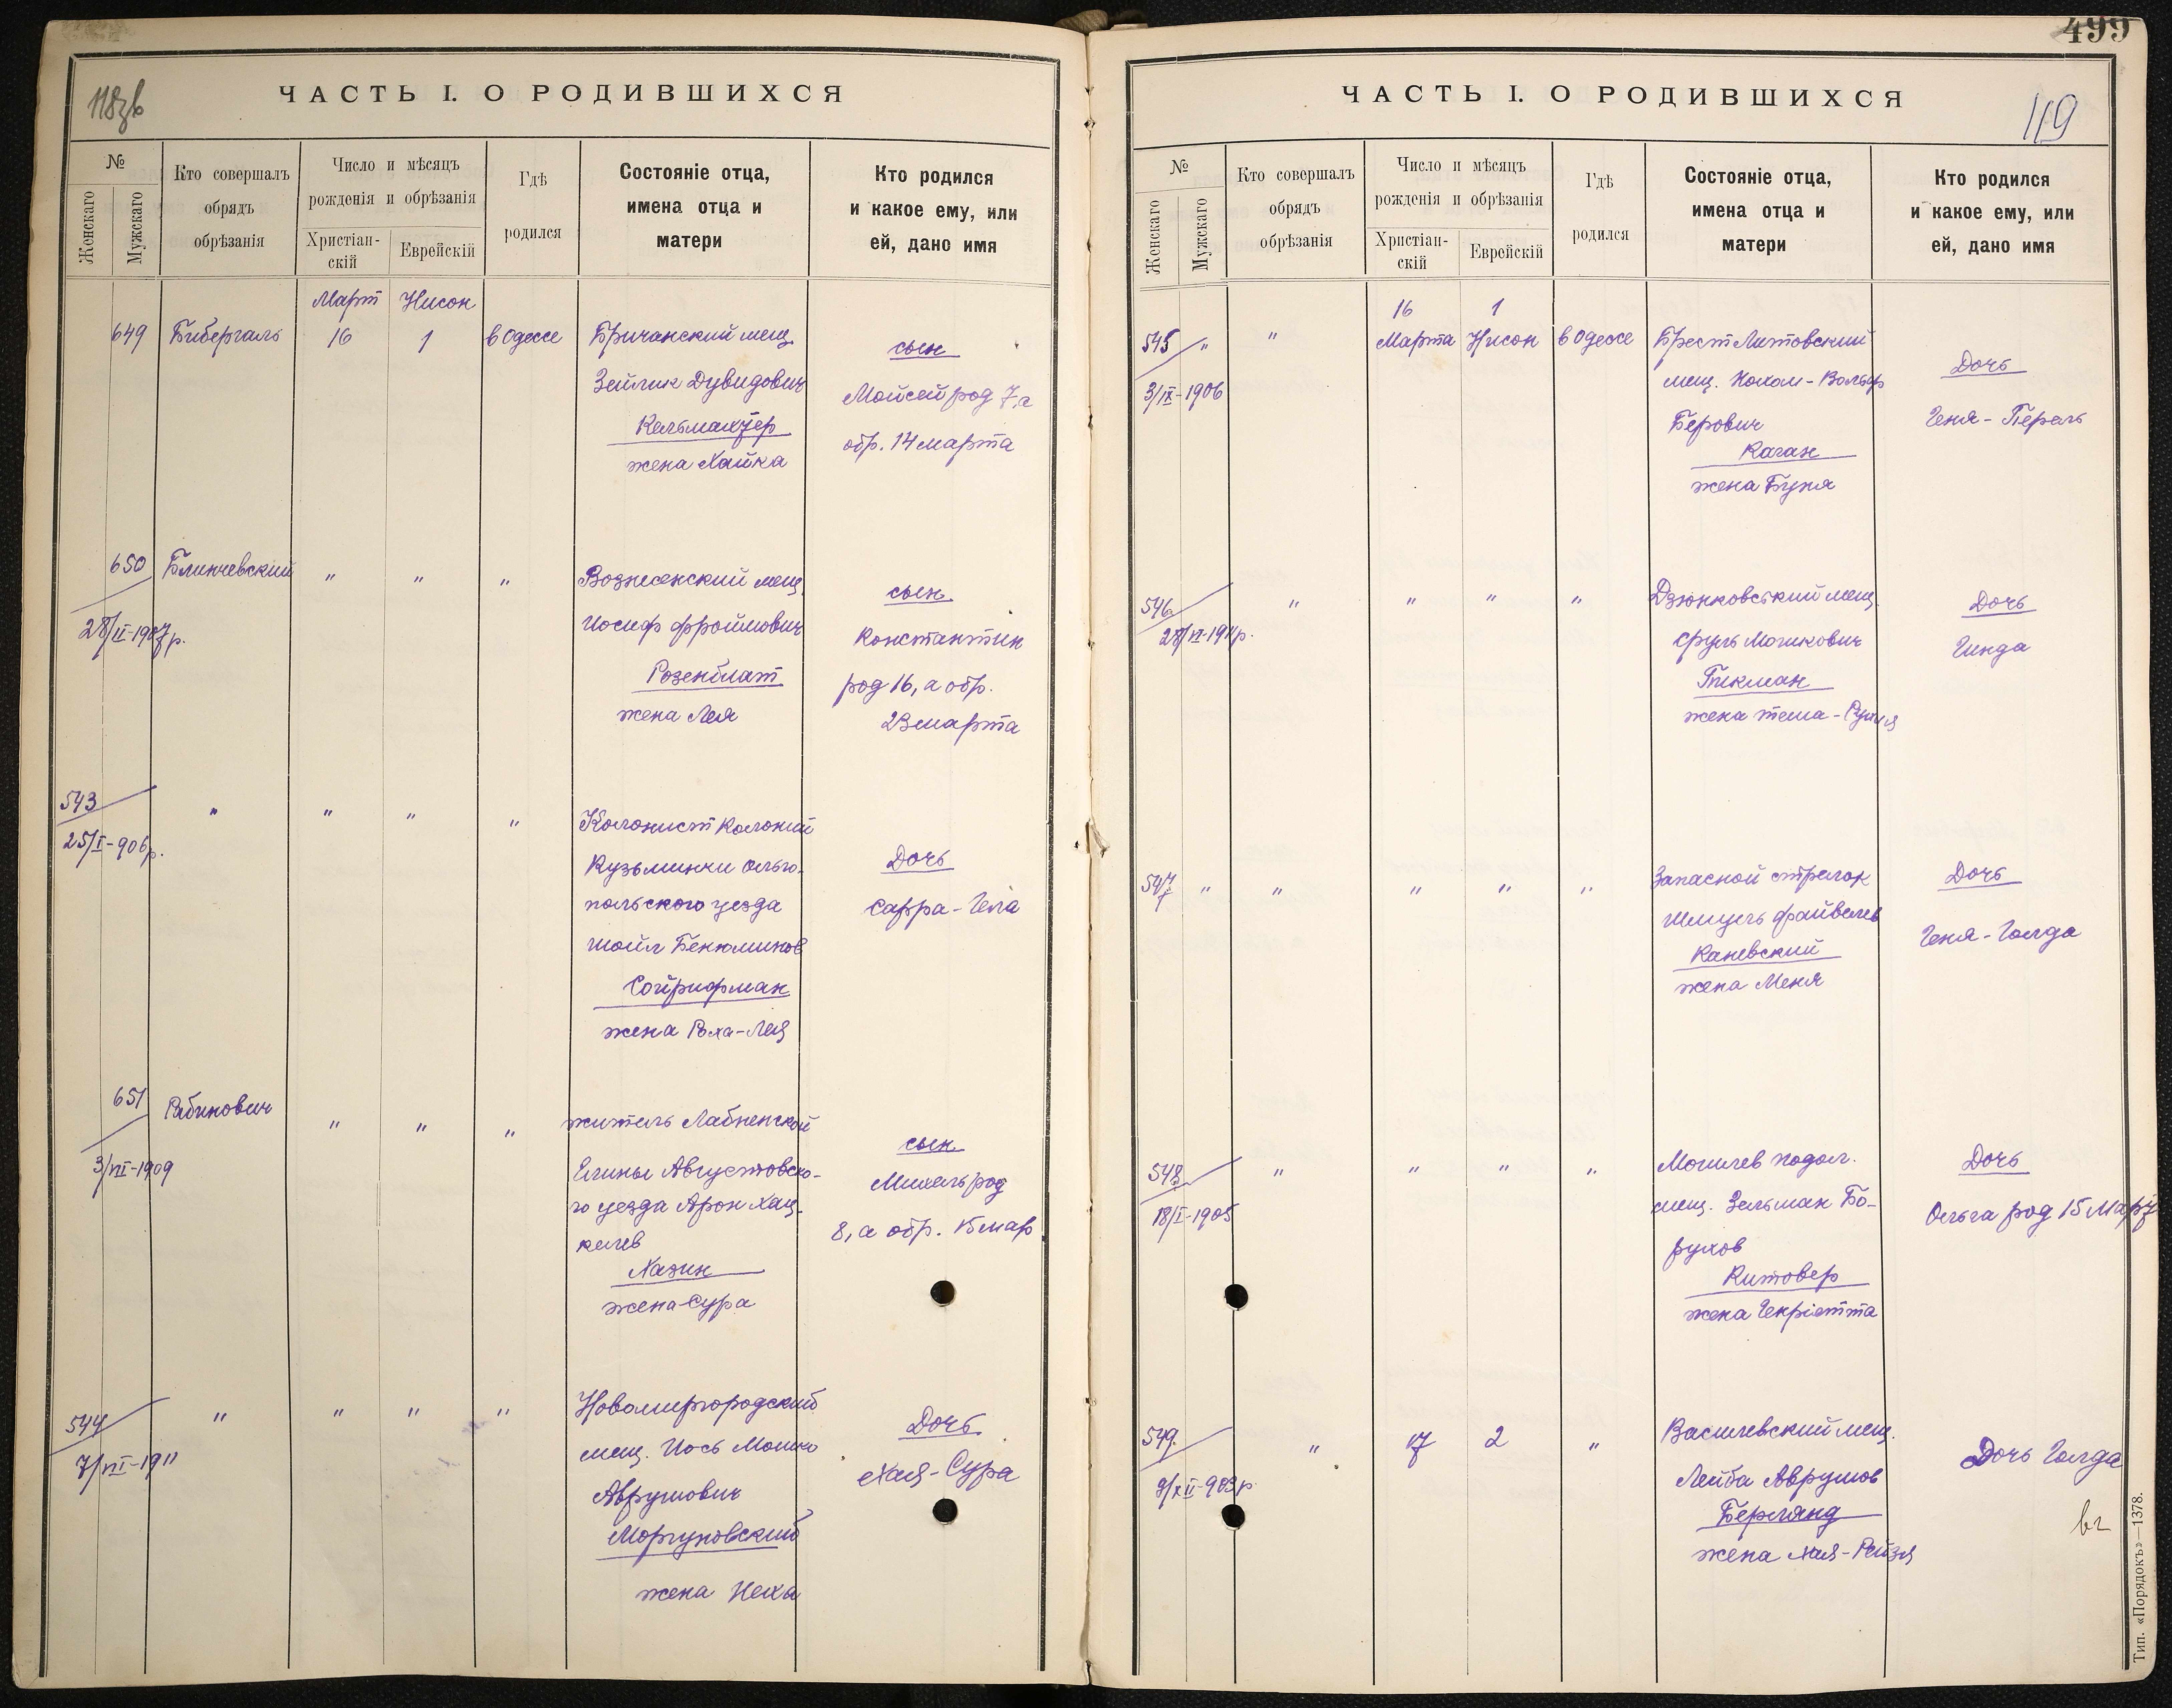 118зв
ЧАСТЬ I. О РОДИВШИХСЯ
№
Женскаго
Мужскаго
Кто совершалъ
обрядъ
обрѣзанія
Число и мѣсяцъ
рожденія и обрѣзанія
Христіан-
скій
Еврейскій
Гдѣ
родился
Состояніе отца,
имена отца и
матери
Кто родился
и какое ему, или
ей, дано имя
Март Нисон
649 Бибергаль 16 1 в Одессе Бричанский мещ.
Зейлик Дувидович
жена Хайка
сын
Мойсей род 7, а
обр. 14 марта
650 Блинчевский " " " Вознесенский мещ.
28/II-1907 р.
Иосиф Фроймович
Розенблат
жена Лея
сын
Константин
род 16, а обр.
23 марта
543 " " " " Колонист колонии
25/I-906 р.
Кузьминки Ольго-
польского уезда
Шойл Бенюминов
Сойрифман
жена Рыха-Лея
Дочь
Сарра-Геля
651 Рабинович " " " житель Лабненской
3/VII-1909
Глины Августовско-
го уезда Арон Хац-
келев
Хазин
жена Сура
сын
Михель род
8, а обр. 15 мар
544 " " " " Новомиргородский
7/VII-1911
мещ. Иось Мошко
Аврумович
Моргуновский
жена Неха
Дочь
Хая-Сура
499
119
ЧАСТЬ I. О РОДИВШИХСЯ
№
Женскаго
Мужскаго
Кто совершалъ
обрядъ
обрѣзанія
Число и мѣсяцъ
рожденія и обрѣзанія
Христіан-
скій
Еврейскій
Гдѣ
родился
Состояніе отца,
имена отца и
матери
Кто родился
и какое ему, или
ей, дано имя
16 1
545 " " Марта Нисон в Одессе Брест Литовский
3/IX-1906
мещ. Нохом-Вольф
Берович
Каган
жена Буня
Дочь
Геня-Перль
546 " " " " Дзюнковський мещ.
28/VI-1911 р.
Сруль Мошкович
жена
Дочь
Гинда
547 " " " " " Запасной стрелок
Шмуль Файвелев
Каневский
жена Меня
Дочь
Геня-Голда
548 " " " " Могилев подол.
18/I-1905
мещ. Зельман Бо-
рухов
Китовер
жена Генріетта
Дочь
Ольга род 15 март
549. " 17 2 " Василевский мещ.
9/XII-903 р.
Лейба Аврумов
Берлянд
жена Хая-Рейзя
Дочь Голда
Тип. «Порядокъ»—1378.